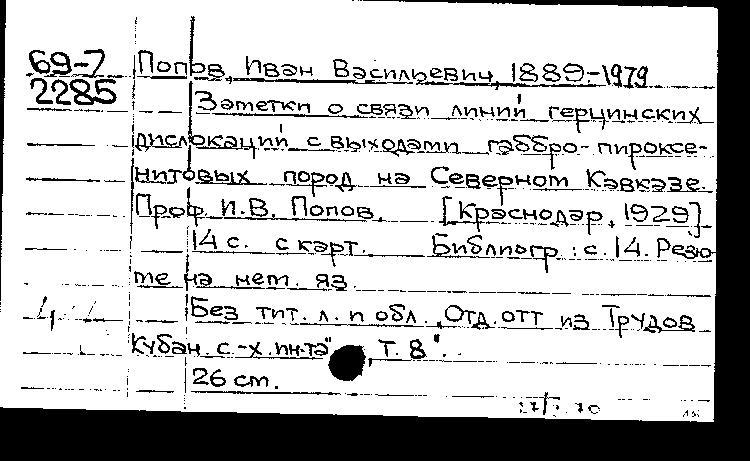 69-7
2285
Попов, Иван Васильевич, 1889-1979
Заметки о связи линий герцинских
дислокаций с выходами габбро-пироксе-
нитовых пород на Северном Кавказе.
Проф. И.В. Попов. [Краснодар, 1929].
14 с. с карт. Библиогр.: с. 14. Резю-
ме на нем. яз.
Без тит. л. и обл. „Отд. отт из Трудов
Кубан. с.-х. ин-та", Т. 8".
26 cm.